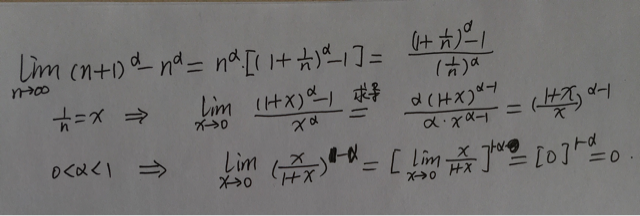 lim n→∞ (n+1)^α - n^α = n^α·[(1+1/n)^α-1] = ((1+1/n)^α-1)/(1/n)^α
1/n = x ⇒ lim x→0 ((1+x)^α-1)/x^α 求导= α(1+x)^(α-1)/(α·x^(α-1)) = ((1+x)/x)^(α-1)
0<α<1 ⇒ lim x→0 (x/(1+x))^(1-α) = [lim x→0 x/(1+x)]^(1-α) = [0]^(1-α) = 0.